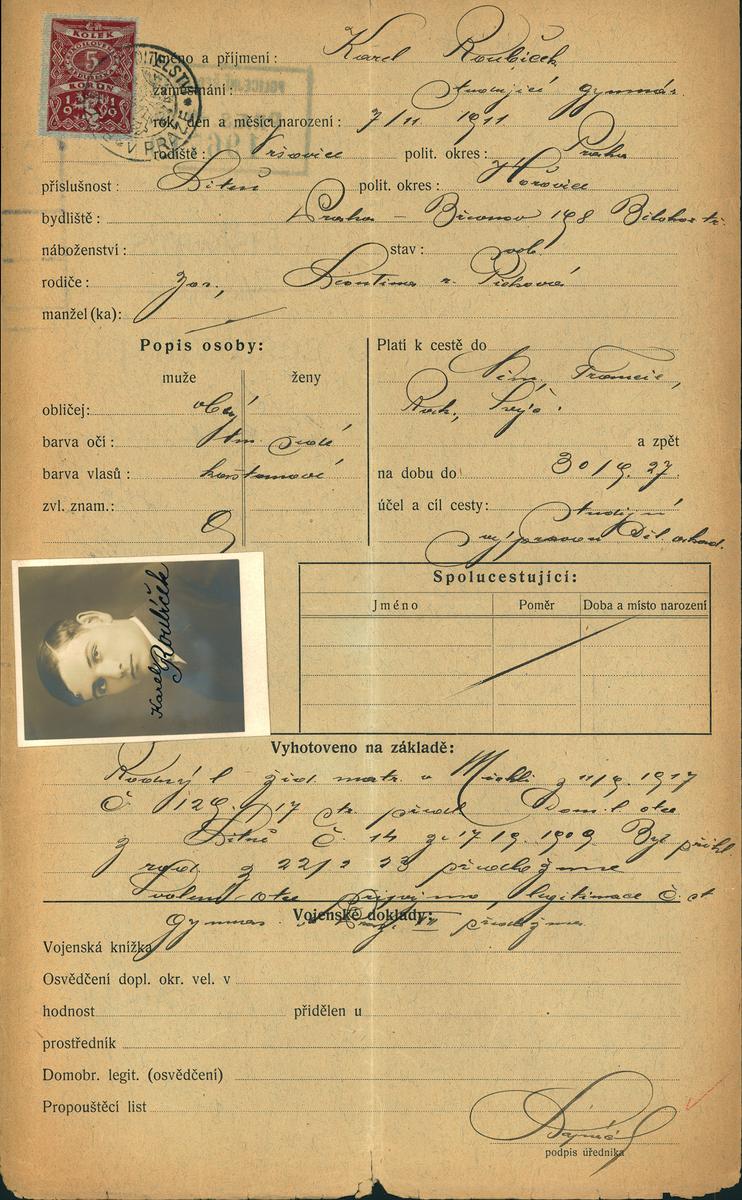 KOLEK
5
KORUN
V PRAZE
jméno a příjmení: Karel Roubíček
zaměstnání: studující gymnás.
rok, den a měsíc narození: 7/11 1911
rodiště: Vršovice polit. okres: Praha
příslušnost: Litni polit. okres: Hořovice
bydliště: Praha - Břevnov 198
náboženství: stav: svob.
rodiče: Jos., r.
manžel (ka):
Popis osoby:
muže ženy
obličej: obl.
barva očí: tm. šedé
barva vlasů: kaštanové
zvl. znam.:
Platí k cestě do Něm., Francie,
Rak., Švýc.
a zpět
na dobu do 30/9. 27
účel a cíl cesty: studijní
výpravou
Spolucestující:
Jméno Poměr Doba a místo narození
Karel Roubíček
Vyhotoveno na základě:
Rodný l. žid. matr. v Michli z 11/9. 1917
č. 129/17 Dom. l. otce
z Litně č. 14 z 17/9. 1909
z 22/2 23 předložena
Svolení otce legitimace č. st
Vojenské doklady:
gymnas. předlož.
Vojenská knížka
Osvědčení dopl. okr. vel. v
hodnost přidělen u
prostředník
Domobr. legit. (osvědčení)
Propouštěcí list
podpis úředníka